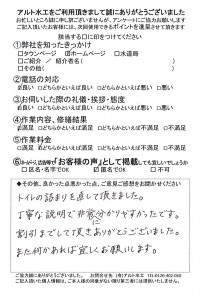 アルト水工をご利用頂きまして誠にありがとうございました
お忙しいところ誠に申し訳ございませんが、アンケートにご協力お願いします
ご記入頂いたお客様には、次回使用できるポイントを進呈させて頂きます
該当する□に印をつけてください
①弊社を知ったきっかけ
□タウンページ ☑ホームページ □水道局
□ご紹介 / 紹介者名( )
□その他( )
②電話の対応
☑良い □どちらかといえば良い □どちらかといえば悪い □悪い
③お伺いした際の礼儀・挨拶・態度
☑良い □どちらかといえば良い □どちらかといえば悪い □悪い
④作業内容、修繕結果
☑満足 □どちらかといえば満足 □どちらかといえば不満 □不満
⑤作業料金
☑満足 □どちらかといえば満足 □どちらかといえば不満 □不満
「お客様の声」として掲載しても宜しいでしょうか
□区名・名字でOK ☑匿名でOK □不可
◆その他、良かった点悪かった点、ご意見ご感想をお聞かせください
トイレの詰まりを直して頂きました。
丁寧な説明で非常に分かりやすかったです。
割引までして頂きありがとうございました。
また何かあれば宜しくお願いします。
ご協力誠にありがとうございました。